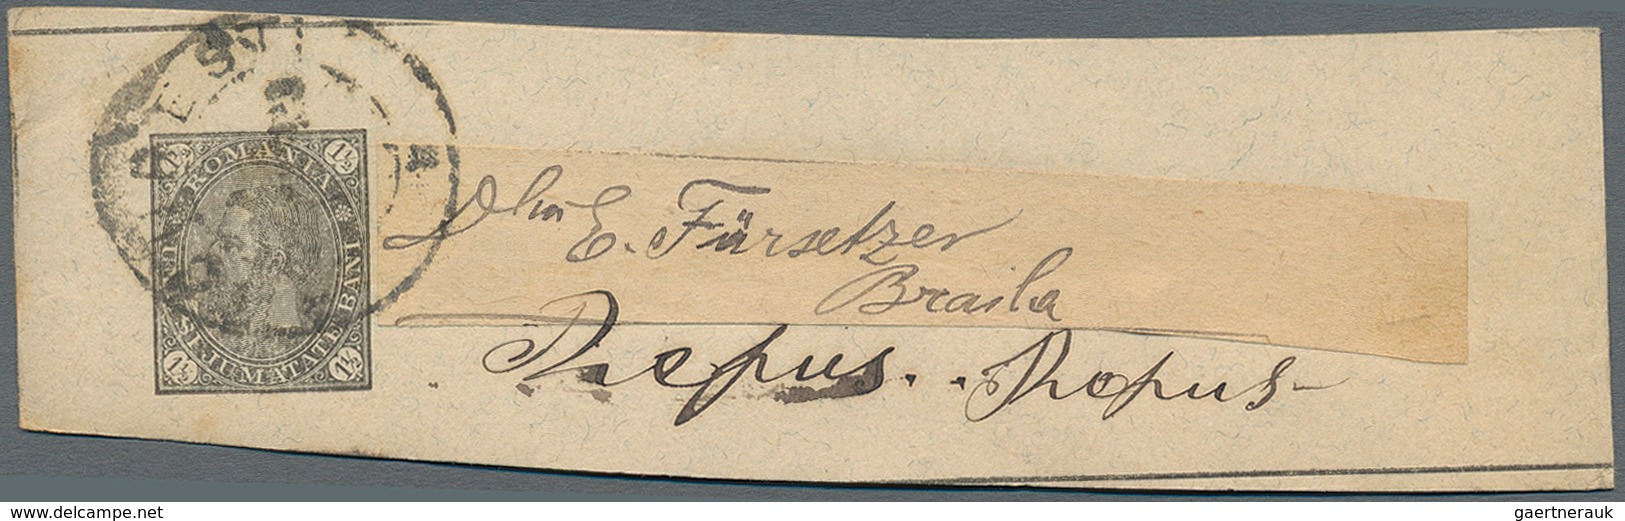 ROMANIA
UNU SI JUMATATE BANI 1
1½ 1½
1½ 1½
Dlui
E. Fürsetzer
Braila
Repus. . Ropus
www.delcampe.net
gaertnerauk